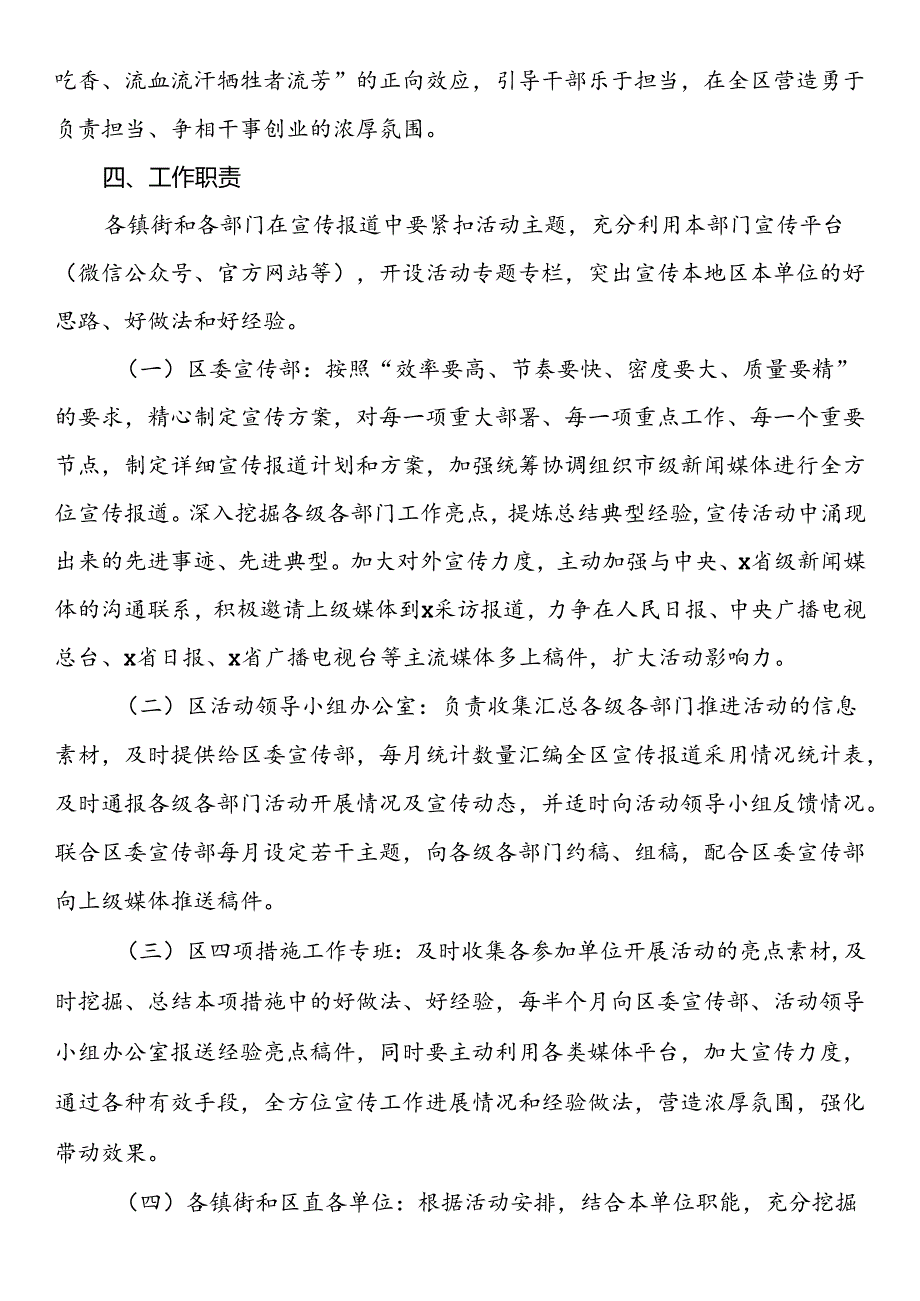 吃香、流血流汗牺牲者流芳”的正向效应，引导干部乐于担当，在全区营造勇于
负责担当、争相干事创业的浓厚氛围。
四、工作职责
各镇街和各部门在宣传报道中要紧扣活动主题，充分利用本部门宣传平台
（微信公众号、官方网站等），开设活动专题专栏，突出宣传本地区本单位的好
思路、好做法和好经验。
（一）区委宣传部：按照“效率要高、节奏要快、密度要大、质量要精”
的要求，精心制定宣传方案，对每一项重大部署、每一项重点工作、每一个重要
节点，制定详细宣传报道计划和方案，加强统筹协调组织市级新闻媒体进行全方
位宣传报道。深入挖掘各级各部门工作亮点，提炼总结典型经验,宣传活动中涌现
出来的先进事迹、先进典型。加大对外宣传力度，主动加强与中央、x省级新闻媒
体的沟通联系，积极邀请上级媒体到x采访报道，力争在人民日报、中央广播电视
总台、x省日报、x省广播电视台等主流媒体多上稿件，扩大活动影响力。
（二）区活动领导小组办公室：负责收集汇总各级各部门推进活动的信息
素材，及时提供给区委宣传部，每月统计数量汇编全区宣传报道采用情况统计表，
及时通报各级各部门活动开展情况及宣传动态，并适时向活动领导小组反馈情况。
联合区委宣传部每月设定若干主题，向各级各部门约稿、组稿，配合区委宣传部
向上级媒体推送稿件。
（三）区四项措施工作专班：及时收集各参加单位开展活动的亮点素材,及
时挖掘、总结本项措施中的好做法、好经验，每半个月向区委宣传部、活动领导
小组办公室报送经验亮点稿件，同时要主动利用各类媒体平台，加大宣传力度，
通过各种有效手段，全方位宣传工作进展情况和经验做法，营造浓厚氛围，强化
带动效果。
（四）各镇街和区直各单位：根据活动安排，结合本单位职能，充分挖掘